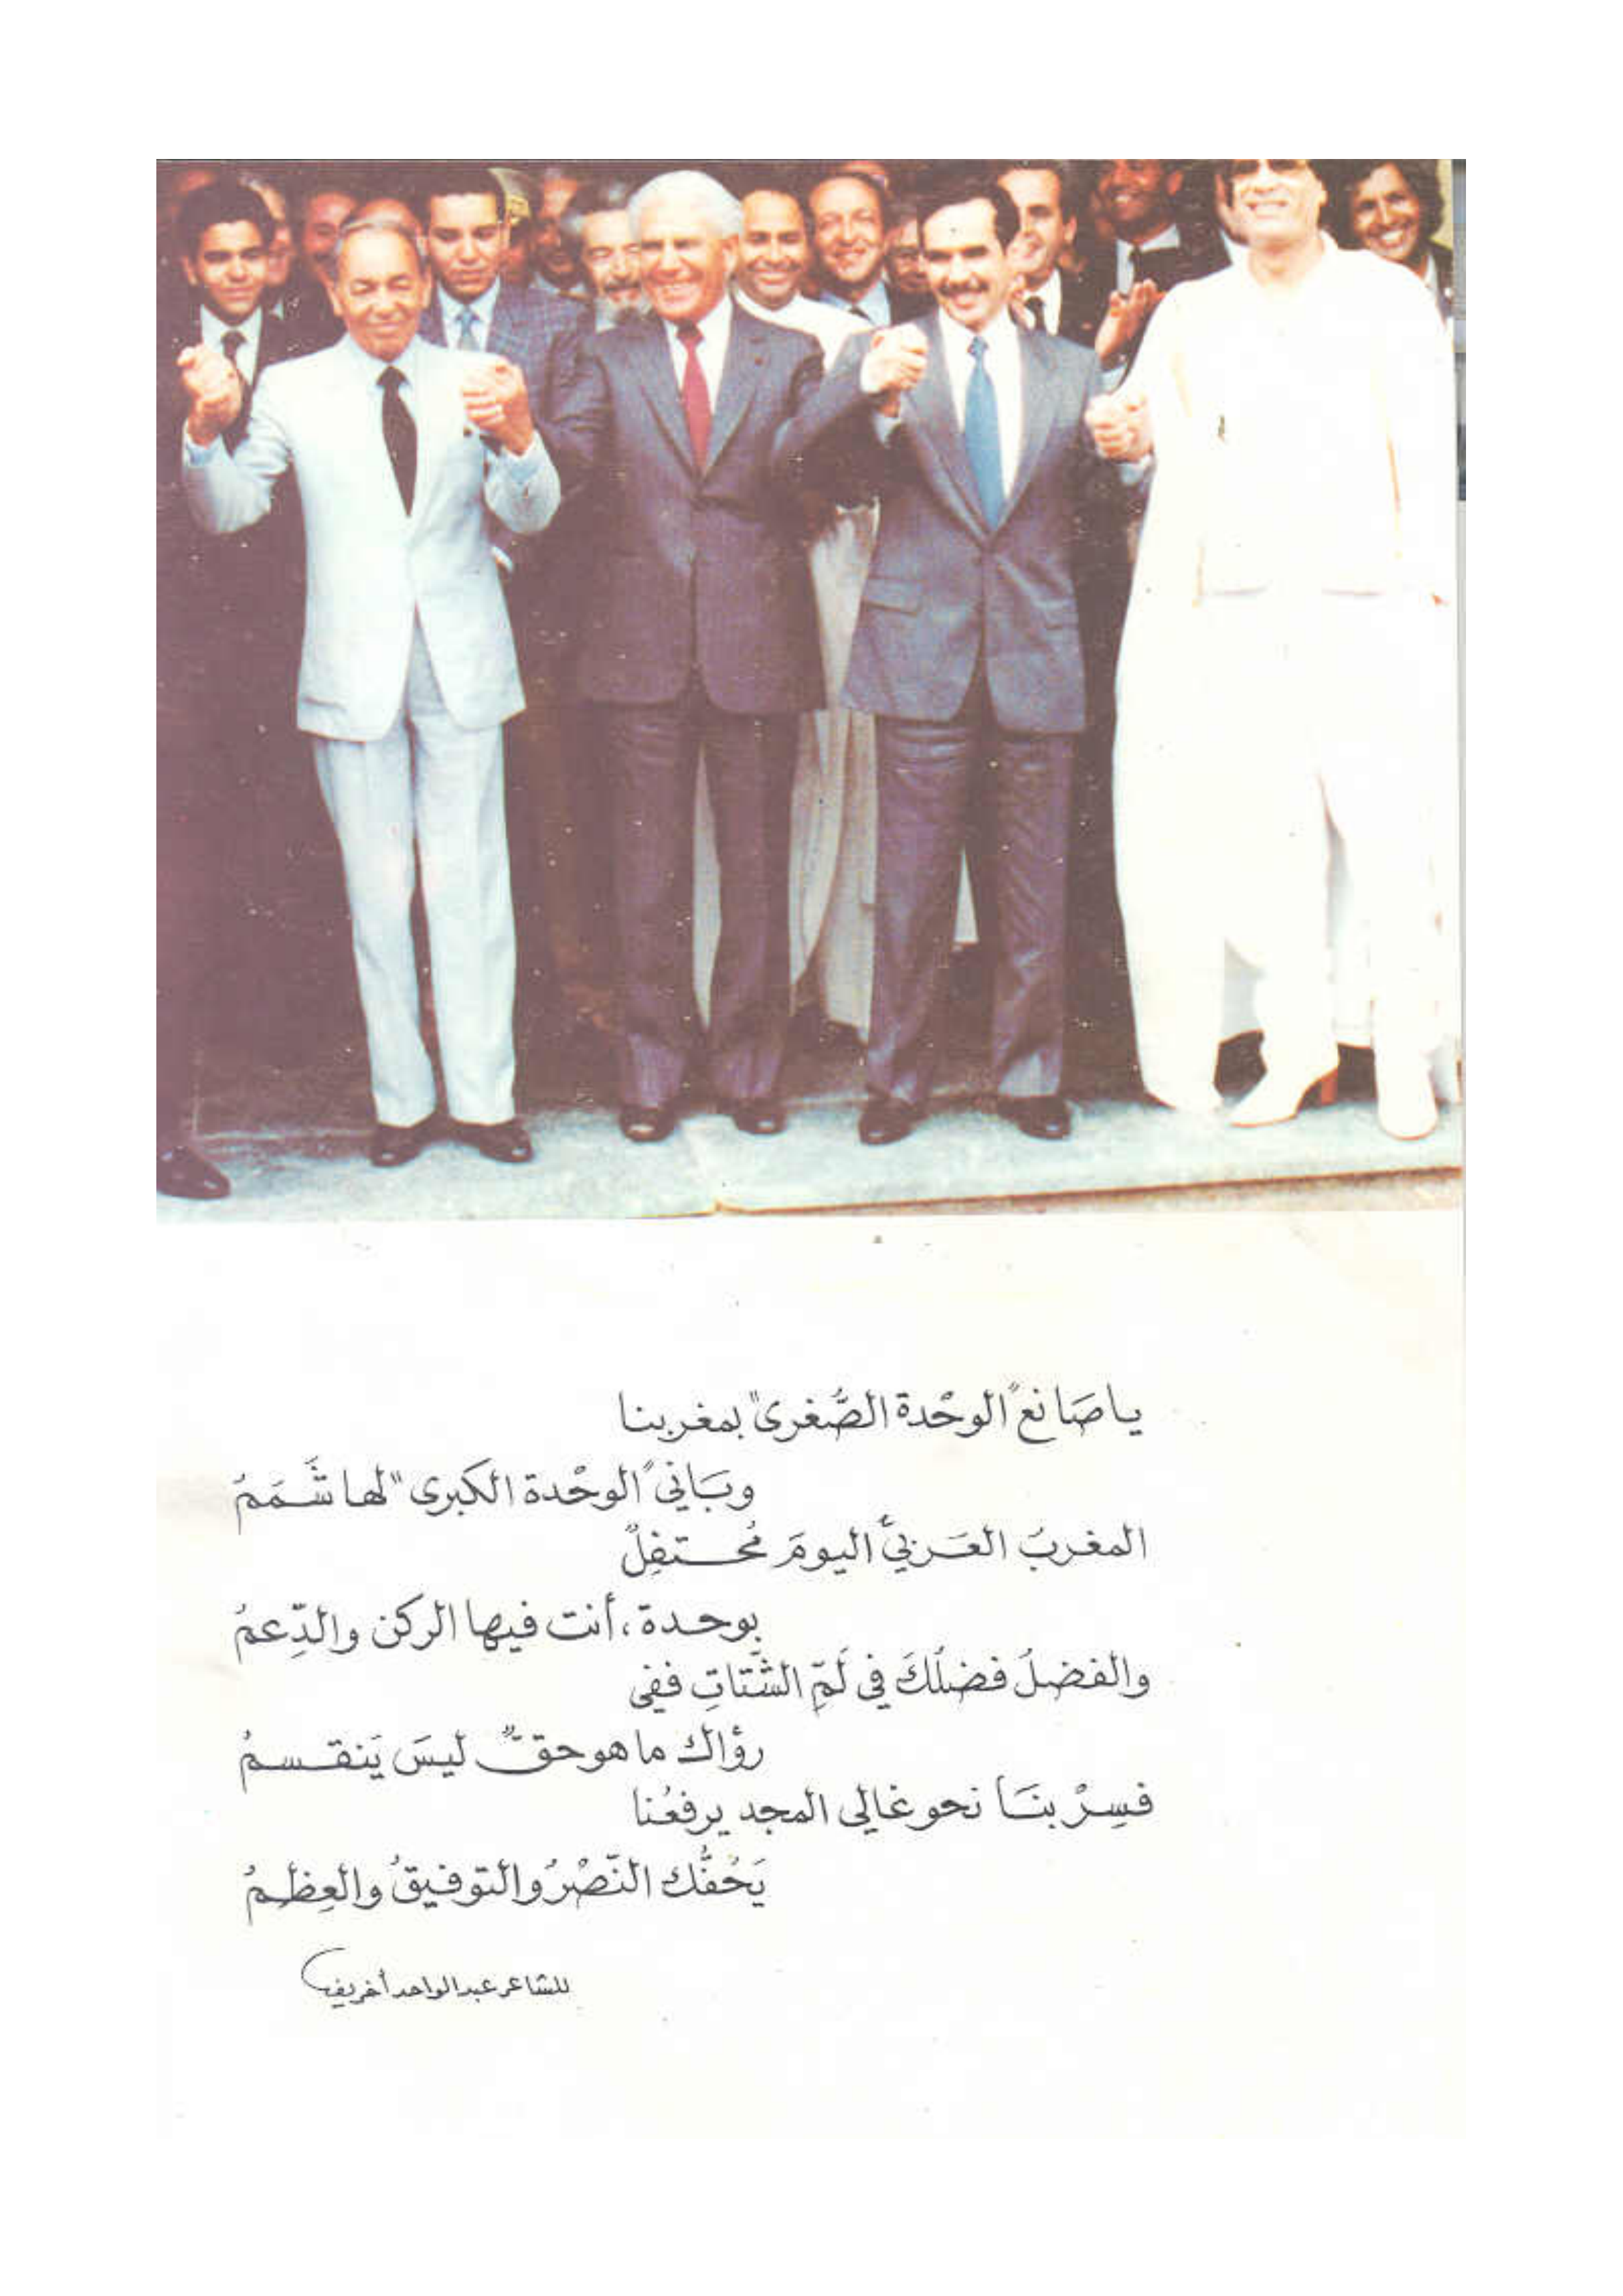 يا صَانعَ "الوحْدة الصُّغرى" بمغربنا
وبَاني "الوحْدة الكبرى" لها شَمَمُ
المغربُ العَربيُّ اليومَ مُحتفِلٌ
بوحدة، أنت فيها الركن والدِّعمُ
والفضلُ فضلُكَ في لَمِّ الشَّتاتِ ففي
رؤاك ما هو حقٌّ ليسَ يَنقسمُ
فسِرْ بنَا نحو غالي المجد يرفعُنا
يَحُفُّك النَّصْرُ والتوفيقُ والعِظمُ
للشاعر عبد الواحد أخريف